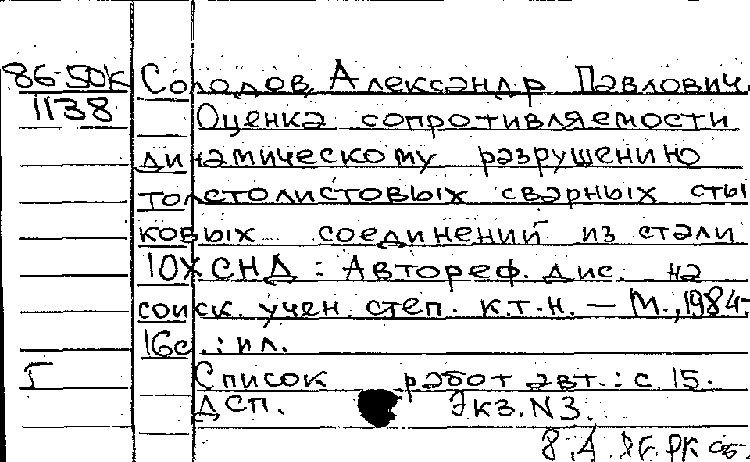 86-50К Солодов, Александр Павлович.
1138 Оценка сопротивляемости
динамическому разрушению
толстолистовых сварных сты
ковых соединений из стали
10ХСНД : Автореф. дис. на
соиск. учен. степ. к.т.н. — М., 1984.
16с. : ил.
Г Список работ авт. : с. 15.
ДСП. Экз. N3.